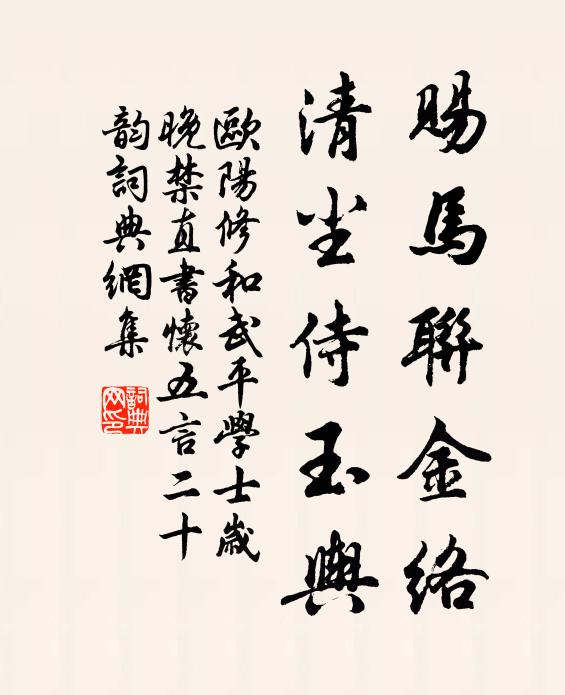 賜馬聯金絡
清尘侍玉輿
歐陽修和武平學士歲
晚禁直書懷五言二十
韵詞典網集
詞典
网印